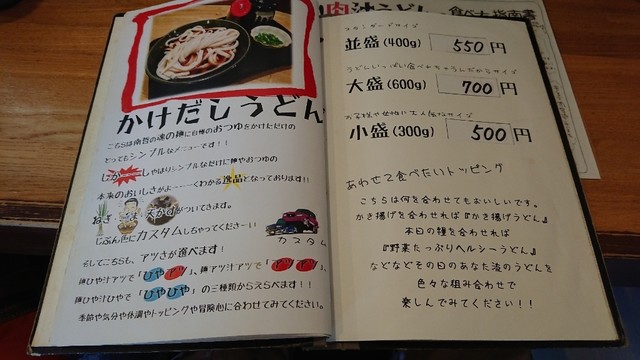 かけだしうどん
こちらは南哲の魂の麺に自慢のおつゆをかけただけの
とってもシンプルなメニューです！！
しかーーし やはりシンプルなだけに麺やおつゆの
本来のおいしさがよーーーくわかる逸品となっております!!
ねぎ 天かすがついてきます。
じぶん色にカスタムしちゃってくださーい
カスタム
そしてこちらも、アツさが選べます！
麺ひや汁アツで「ひやアツ」、麺アツ汁アツで「アツアツ」、
麺ひや汁ひやで「ひやひや」の三種類からえらべます！！
季節や気分や体調やトッピングや冒険心に合わせてみてください。
スタンダードサイズ
並盛(400g) 550円
うどんいっぱい食べれちゃうんだからサイズ
大盛(600g) 700円
お子様や女性に大人気なサイズ
小盛(300g) 500円
あわせて食べたいトッピング
こちらは何を合わせてもおいしいです。
かき揚げを合わせれば『かき揚げうどん』
本日の種を合わせれば
『野菜たっぷりヘルシ～うどん』
などなどその日のあなた流のうどんを
色々な組み合わせで
楽しんでみてください！！
肉汁うどん
食べ方指南書